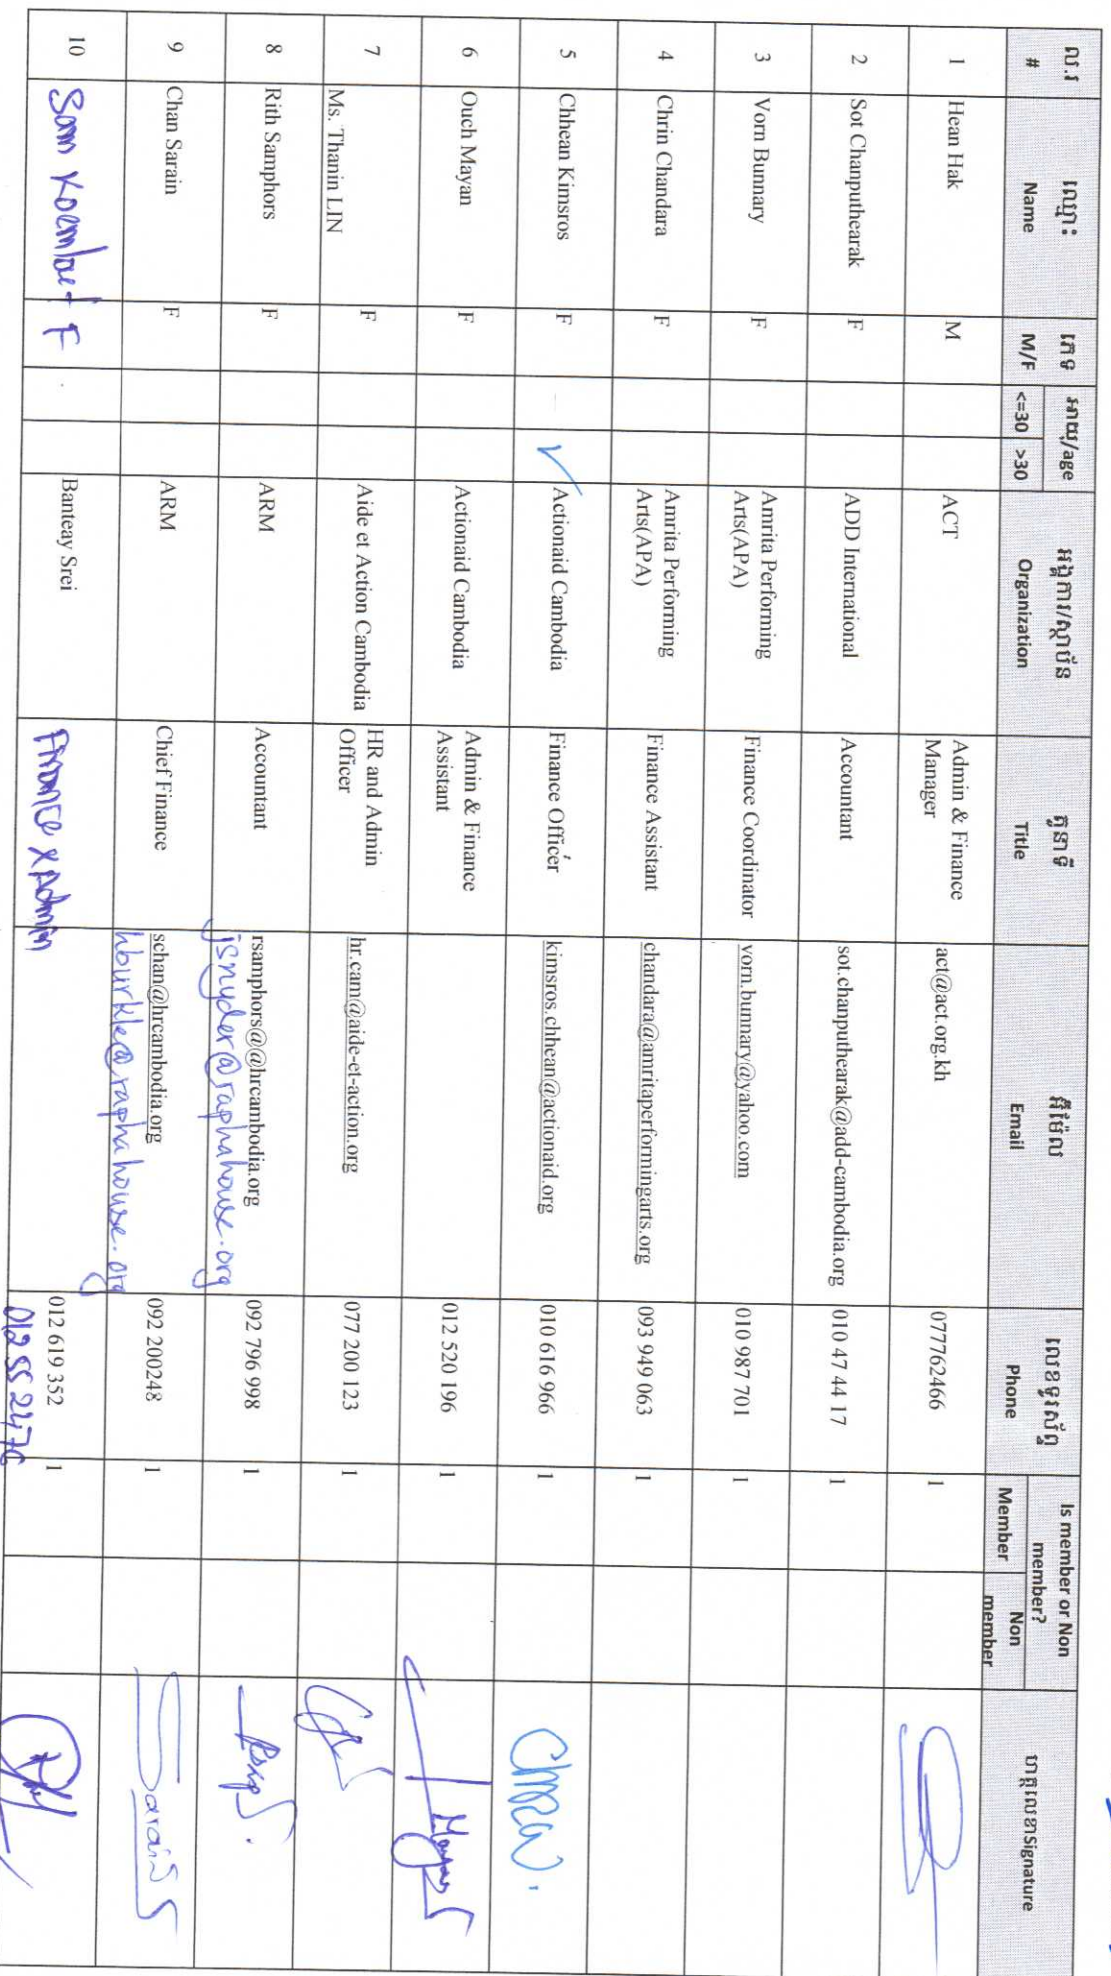 ល.រ ឈ្មោះ ភេទ អាយុ/age អង្គការ/ស្ថាប័ន តួនាទី អ៊ីម៉ែល លេខទូរស័ព្ទ Is member or Non member? ហត្ថលេខាSignature
# Name M/F <=30 >30 Organization Title Email Phone Member Non member
1 Hean Hak M ACT Admin & Finance Manager act@act.org.kh 077762466 1
2 Sot Chanputhearak F ADD International Accountant sot.chanputhearak@add-cambodia.org 010 47 44 17 1
3 Vorn Bunnary F Amrita Performing Arts(APA) Finance Coordinator vorn.bunnary@yahoo.com 010 987 701 1
4 Chrin Chandara F Amrita Performing Arts(APA) Finance Assistant chandara@amritaperformingarts.org 093 949 063 1
5 Chhean Kimsros F ✓ Actionaid Cambodia Finance Officer kimsros.chhean@actionaid.org 010 616 966 1
6 Ouch Mayan F Actionaid Cambodia Admin & Finance Assistant 012 520 196 1
7 Ms. Thanin LIN F Aide et Action Cambodia HR and Admin Officer hr.cam@aide-et-action.org 077 200 123 1
8 Rith Samphors F ARM Accountant rsamphors@@hrcambodia.org 092 796 998 1
jsnyder@raphahouse.org
9 Chan Sarain F ARM Chief Finance schan@hrcambodia.org 092 200248 1
hburkle@raphahouse.org
10 F Banteay Srei Finance & Admin 012 619 352 1
012 55 2476